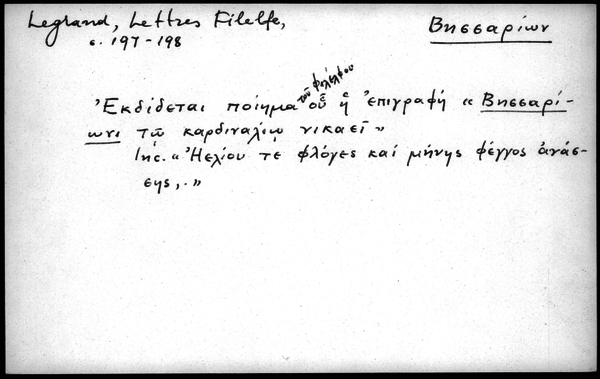 Legrand, Lettres Filelfe,
σ. 197-198
Βησσαρίων
τοῦ Φιλέλφου
Ἐκδίδεται ποίημα οὗ ἡ ἐπιγραφή « Βησσαρί-
ωνι τῷ καρδιναλίῳ νικαεῖ »
Inc. « Ἠελίου τε φλόγες καί μήνης φέγγος ἀνάσ-
σης, . »